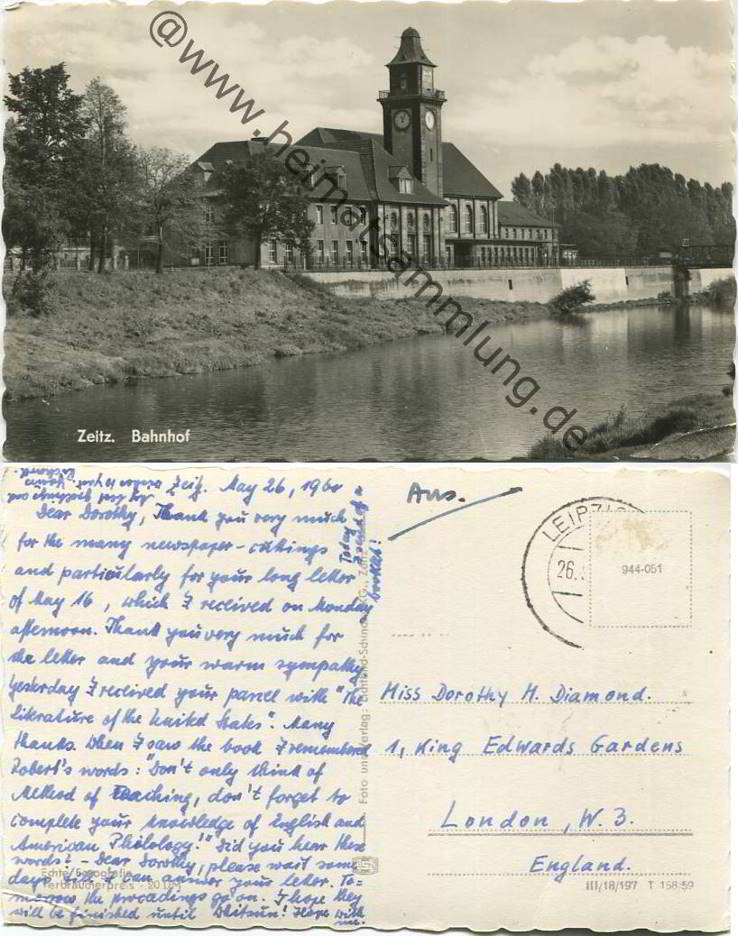 @www.heimatsammlung.de
Zeitz. Bahnhof
Zeitz. May 26, 1960
Dear Dorothy, Thank you very much
for the many newspaper-cuttings
and particularly for your long letter
of May 16, which I received on Monday
afternoon. Thank you very much for
the letter and your warm sympathy
Yesterday I received your parcel with "The
Literature of the United States". Many
thanks. When I saw the book I remembered
Robert's words: "Don't only think of
Method of Teaching, don't forget to
complete your knowledge of English and
American Philology!" Did you hear these
words? - Dear Dorothy, please wait some
days till I can answer your letter. To=
morrow the proceedings go on. I hope they
will be finished until Whitsun! Hope with
me.
Today I send of a
booklet!
Echte Fotografie
Verbraucherpreis -.20 DM
Foto und Verlag:
Aus.
LEIPZIG
26.
944-051
Miss Dorothy H. Diamond.
1, King Edwards Gardens
London, W. 3.
England.
III/18/197 T 168 59